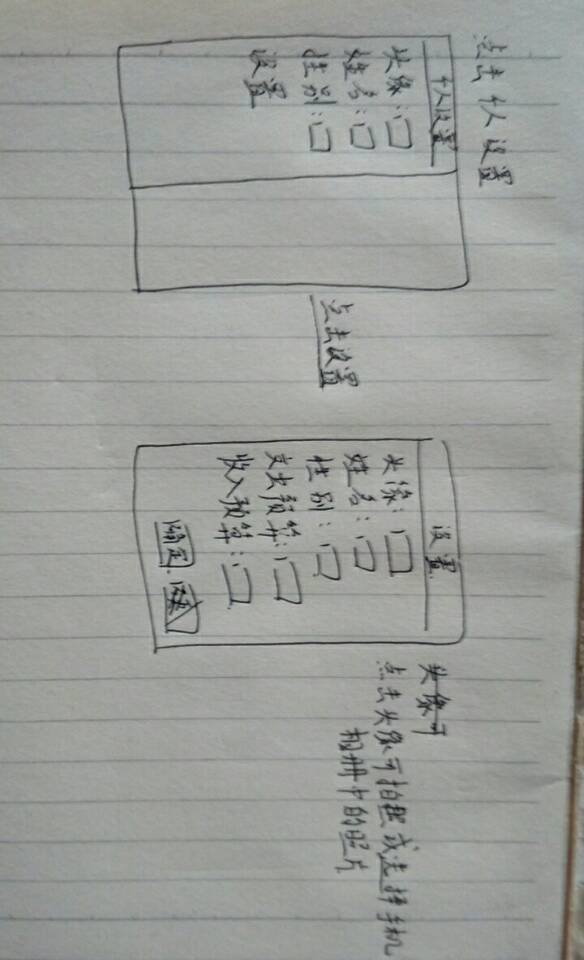 点击个人设置
个人设置
头像:
姓名:
性别:
设置
点击设置
设置
头像:
姓名:
性别:
支出预算:
收入预算:
确定
头像可
点击头像可拍照或选择手机
相册中的照片